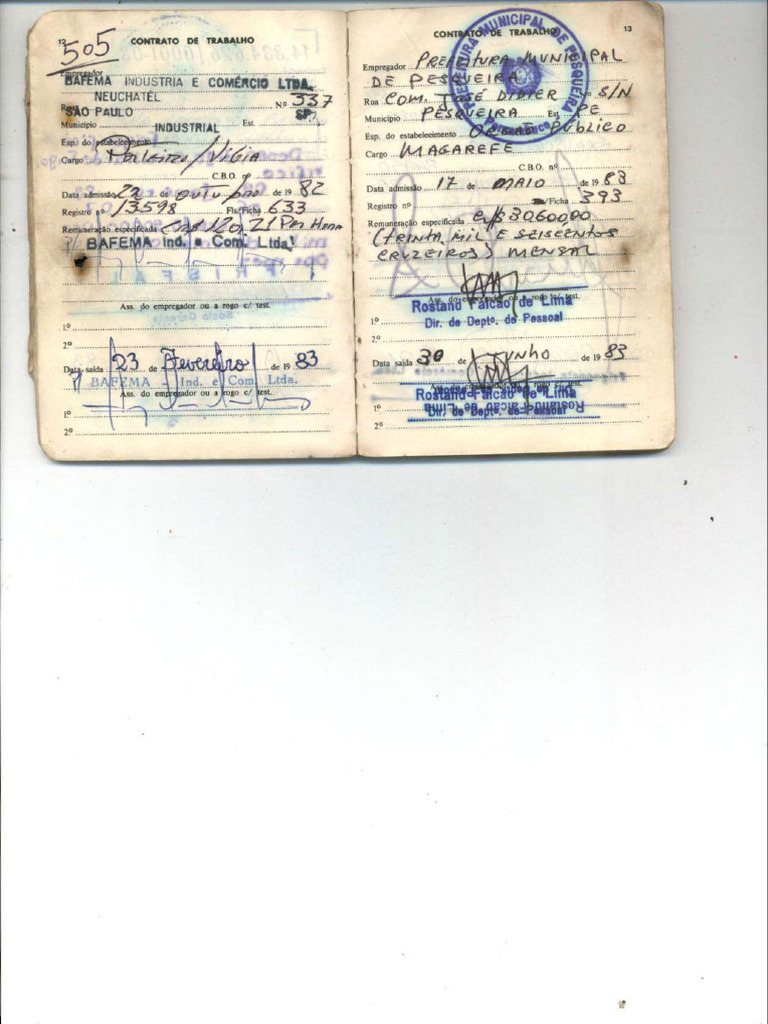 12 CONTRATO DE TRABALHO
505
Empregador
BAFEMA INDUSTRIA E COMÉRCIO LTDA.
Rua NEUCHATÉL Nº 337
SÃO PAULO SP.
Município Est.
INDUSTRIAL
Esp. do estabelecimento
Cargo Porteiro/Vigia
C.B.O. nº
Data admissão 22 de outubro de 19 82
Registro nº 13598 Fls/Ficha 633
Remuneração especificada Cr$ 120,21 Por Hora
BAFEMA Ind. e Com. Ltda.
Ass. do empregador ou a rogo c/ test.
1º
2º
Data saída 23 de Fevereiro de 19 83
BAFEMA - Ind. e Com. Ltda.
Ass. do empregador ou a rogo c/ test.
1º
2º
CONTRATO DE TRABALHO 13
PREFEITURA MUNICIPAL DE PESQUEIRA
PERNAMBUCO
Empregador PREFEITURA MUNICIPAL
DE PESQUEIRA
Rua COM. JOSÉ DIDIER Nº S/N
Município PESQUEIRA Est. PE
Esp. do estabelecimento ORGÃO PÚBLICO
Cargo MAGAREFE
C.B.O. nº
Data admissão 17 de MAIO de 19 83
Registro nº Fls/Ficha 393
Remuneração especificada Cr$ 30.600,00
(TRINTA MIL E SEISCENTOS
CRUZEIROS) MENSAL
Ass. do empregador ou a rogo c/ test.
Rostand Falcão de Lima
1º Dir. de Deptº. de Pessoal
2º
Data saída 30 de JUNHO de 19 83
Rostand Falcão de Lima
1º Dir. de Deptº. de Pessoal
2º